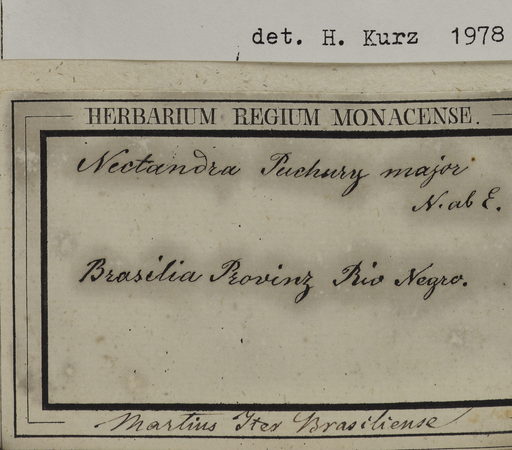 det. H. Kurz 1978
HERBARIUM REGIUM MONACENSE.
Nectandra Puchury major
N. ab E.
Brasilia Provinz Rio Negro.
Martius Iter Brasiliense